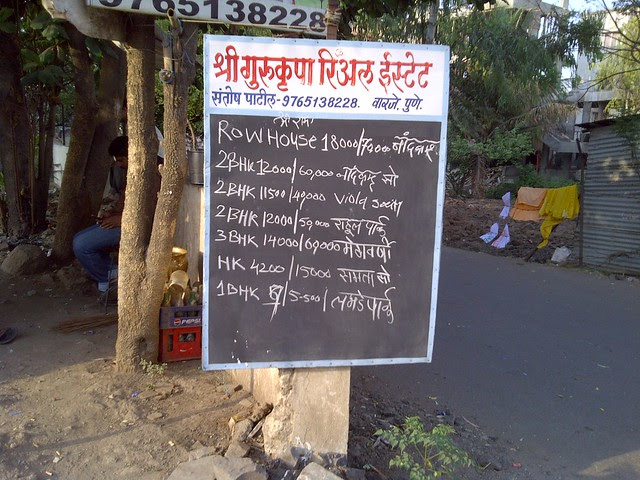 9765138228
श्री गुरुकृपा रिॲल ईस्टेट
संतोष पाटील-9765138228. वारजे, पुणे.
ROW HOUSE 18000/
2BHK 12000/60,000 सो
2BHK 11500/40000 Viola
2BHK 12000/50,000 राहुल पार्क
3BHK 14000/60,000
HK 4200/15000 समता सो
1BHK /5-500/ पार्क
PEPSI